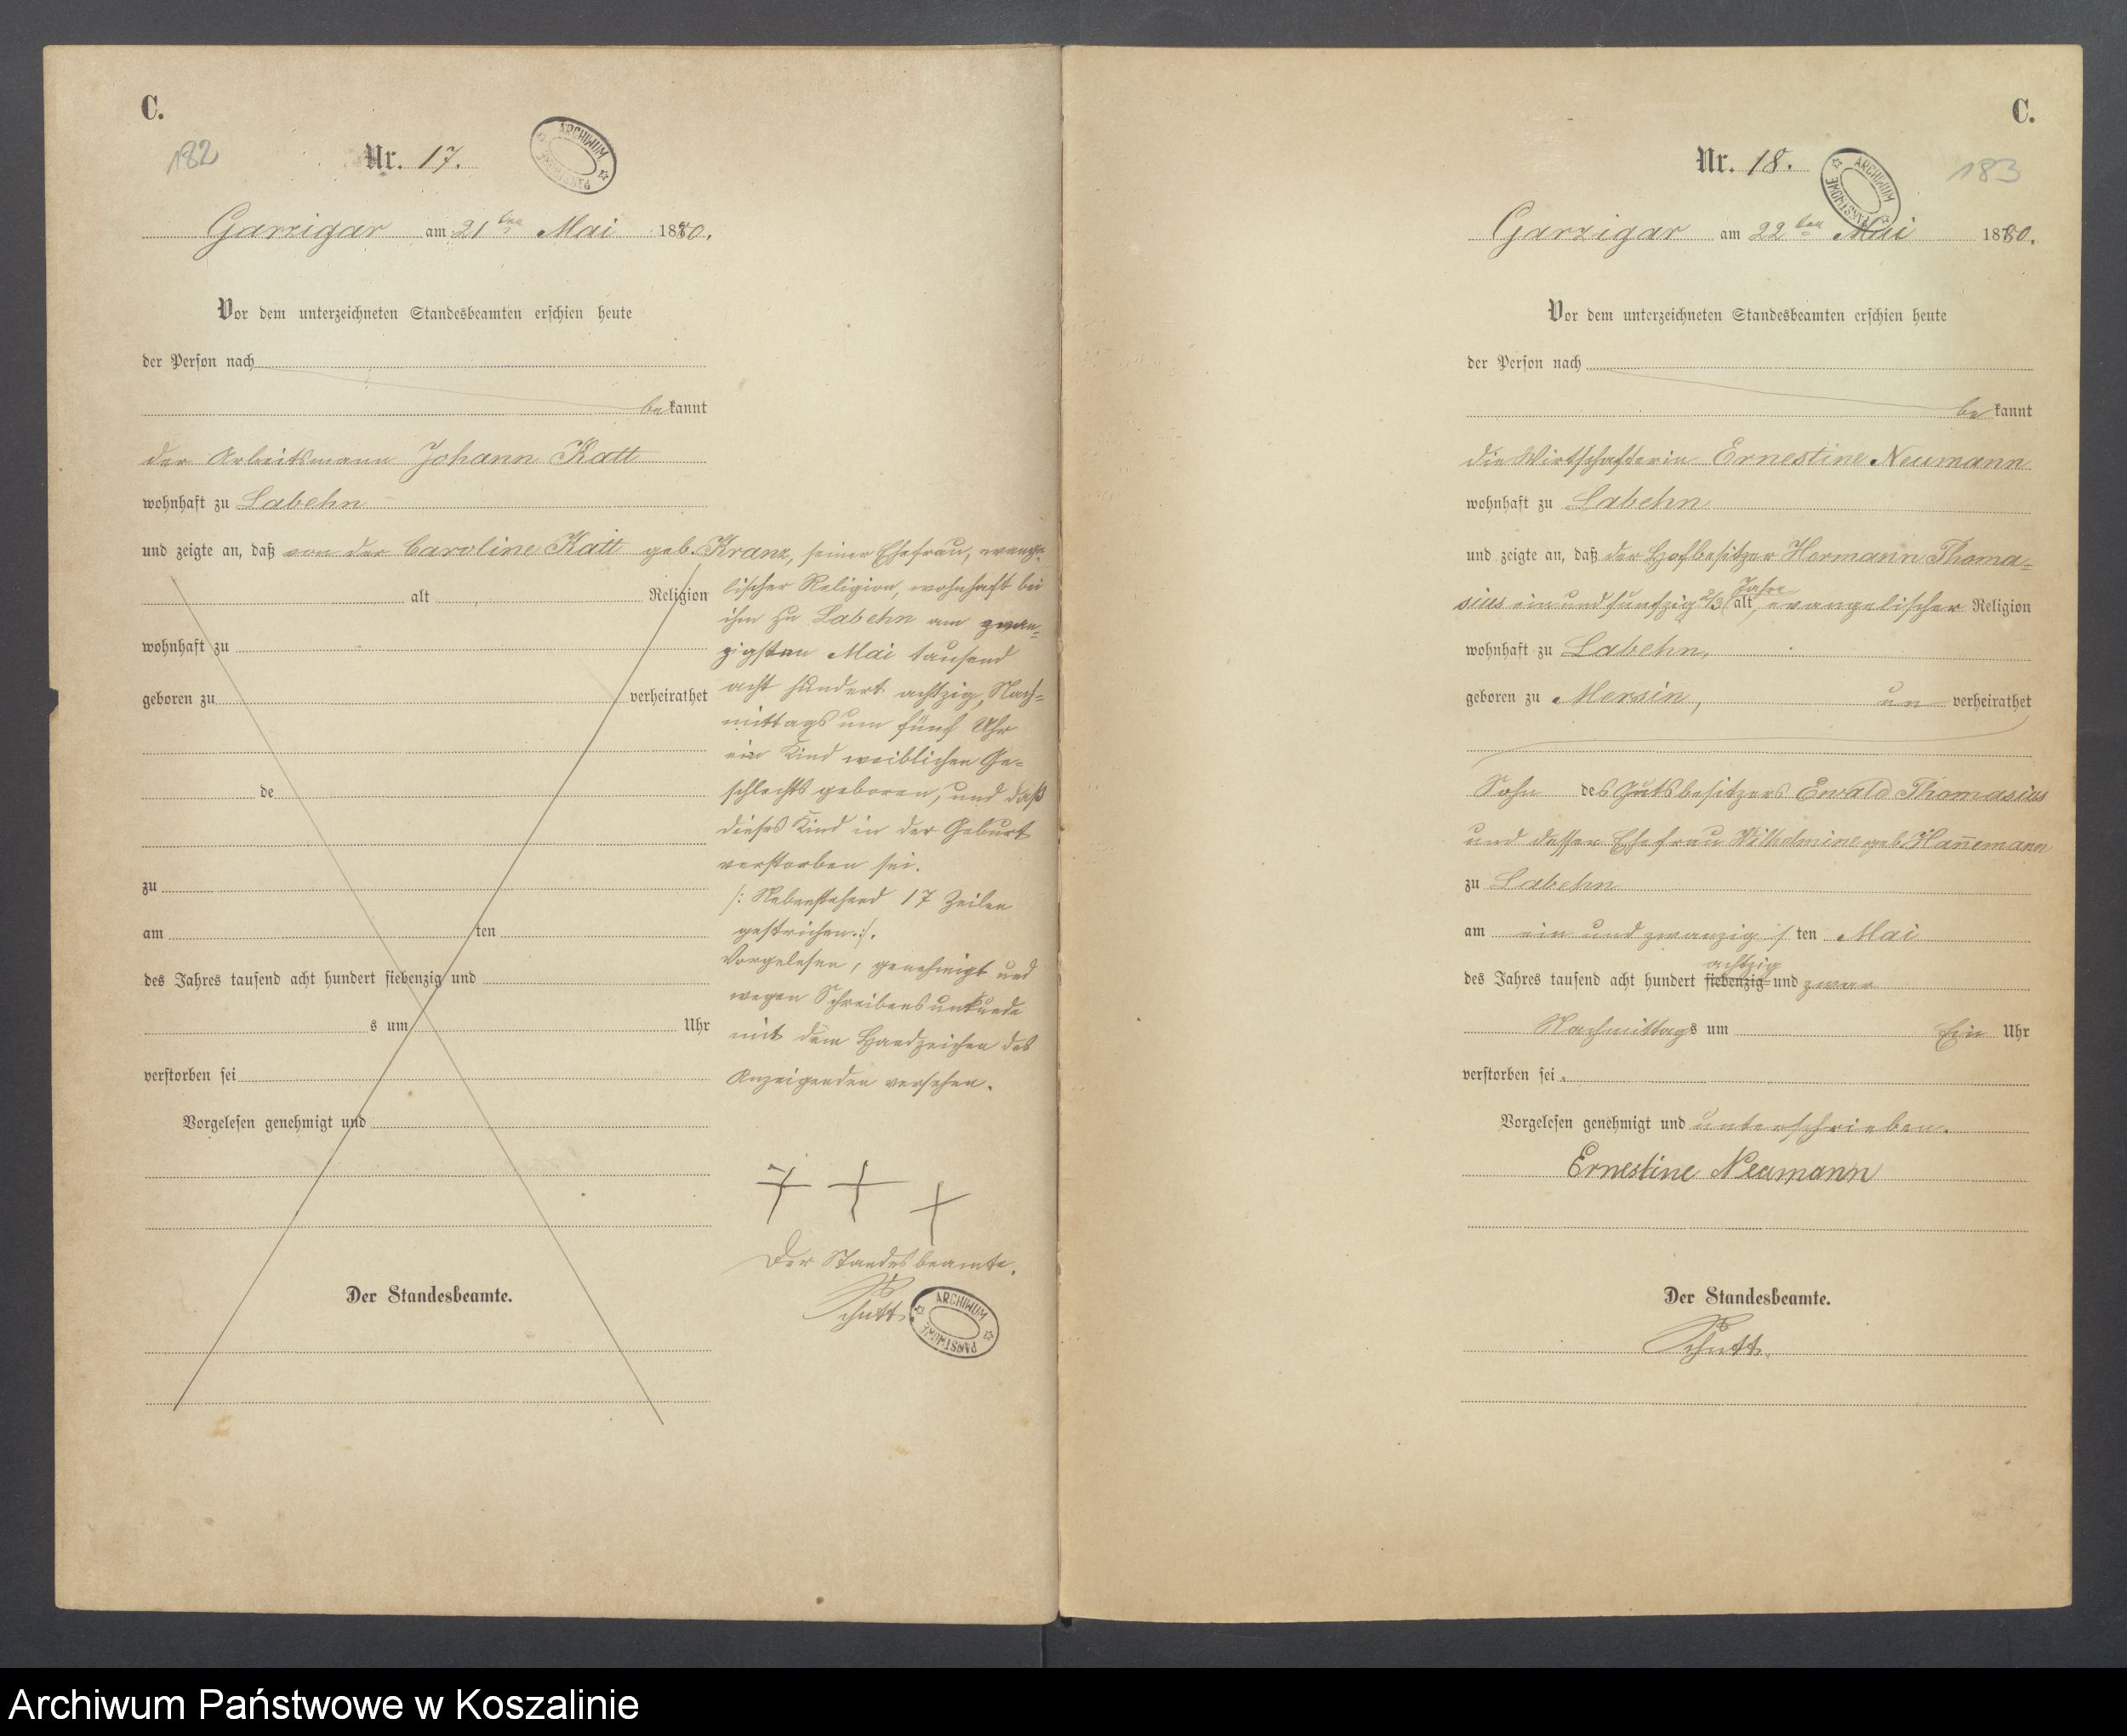 C.
182
Nr. 17.
ARCHIWUM PAŃSTWOWE
Garzigar am 21ten Mai 1880.
Vor dem unterzeichneten Standesbeamten erschien heute
der Person nach
bekannt
der Arbeitsmann Johann Katt
wohnhaft zu Labehn
und zeigte an, daß von der Caroline Katt geb. Kranz, seiner Ehefrau, evange-
alt Religion
wohnhaft zu
geboren zu verheirathet
de
zu
am ten
des Jahres tausend acht hundert siebenzig und
s um Uhr
verstorben sei
Vorgelesen genehmigt und
Der Standesbeamte.
lischer Religion, wohnhaft bei
ihm zu Labehn am zwan-
zigsten Mai tausend
acht hundert achtzig, Nach-
mittags um fünf Uhr
ein Kind weiblichen Ge-
schlechts geboren, und daß
dieses Kind in der Geburt
verstorben sei.
/: Nebenstehend 17 Zeilen
gestrichen :/.
Vorgelesen, genehmigt und
wegen Schreibensunkunde
mit dem Handzeichen des
Anzeigenden versehen.
+ + +
Der Standesbeamte.
Schutt.
ARCHIWUM PAŃSTWOWE
C.
Nr. 18.
ARCHIWUM PAŃSTWOWE
183
Garzigar am 22ten Mai 1880.
Vor dem unterzeichneten Standesbeamten erschien heute
der Person nach
bekannt
die Wirthschafterin Ernestine Neumann
wohnhaft zu Labehn
und zeigte an, daß der Hofbesitzer Hermann Thoma-
sius ein und funfzig 2/3 Jahre alt, evangelischer Religion
wohnhaft zu Labehn,
geboren zu Mersin, un verheirathet
Sohn des Gutsbesitzers Ewald Thomasius
und dessen Ehefrau Wilhelmine geb. Han̄emann
zu Labehn
am ein und zwanzigs ten Mai
des Jahres tausend acht hundert siebenzig achtzig und zwar
Nachmittags um Ein Uhr
verstorben sei.
Vorgelesen genehmigt und unterschrieben.
Ernestine Neumann
Der Standesbeamte.
Schutt.
Archiwum Państwowe w Koszalinie